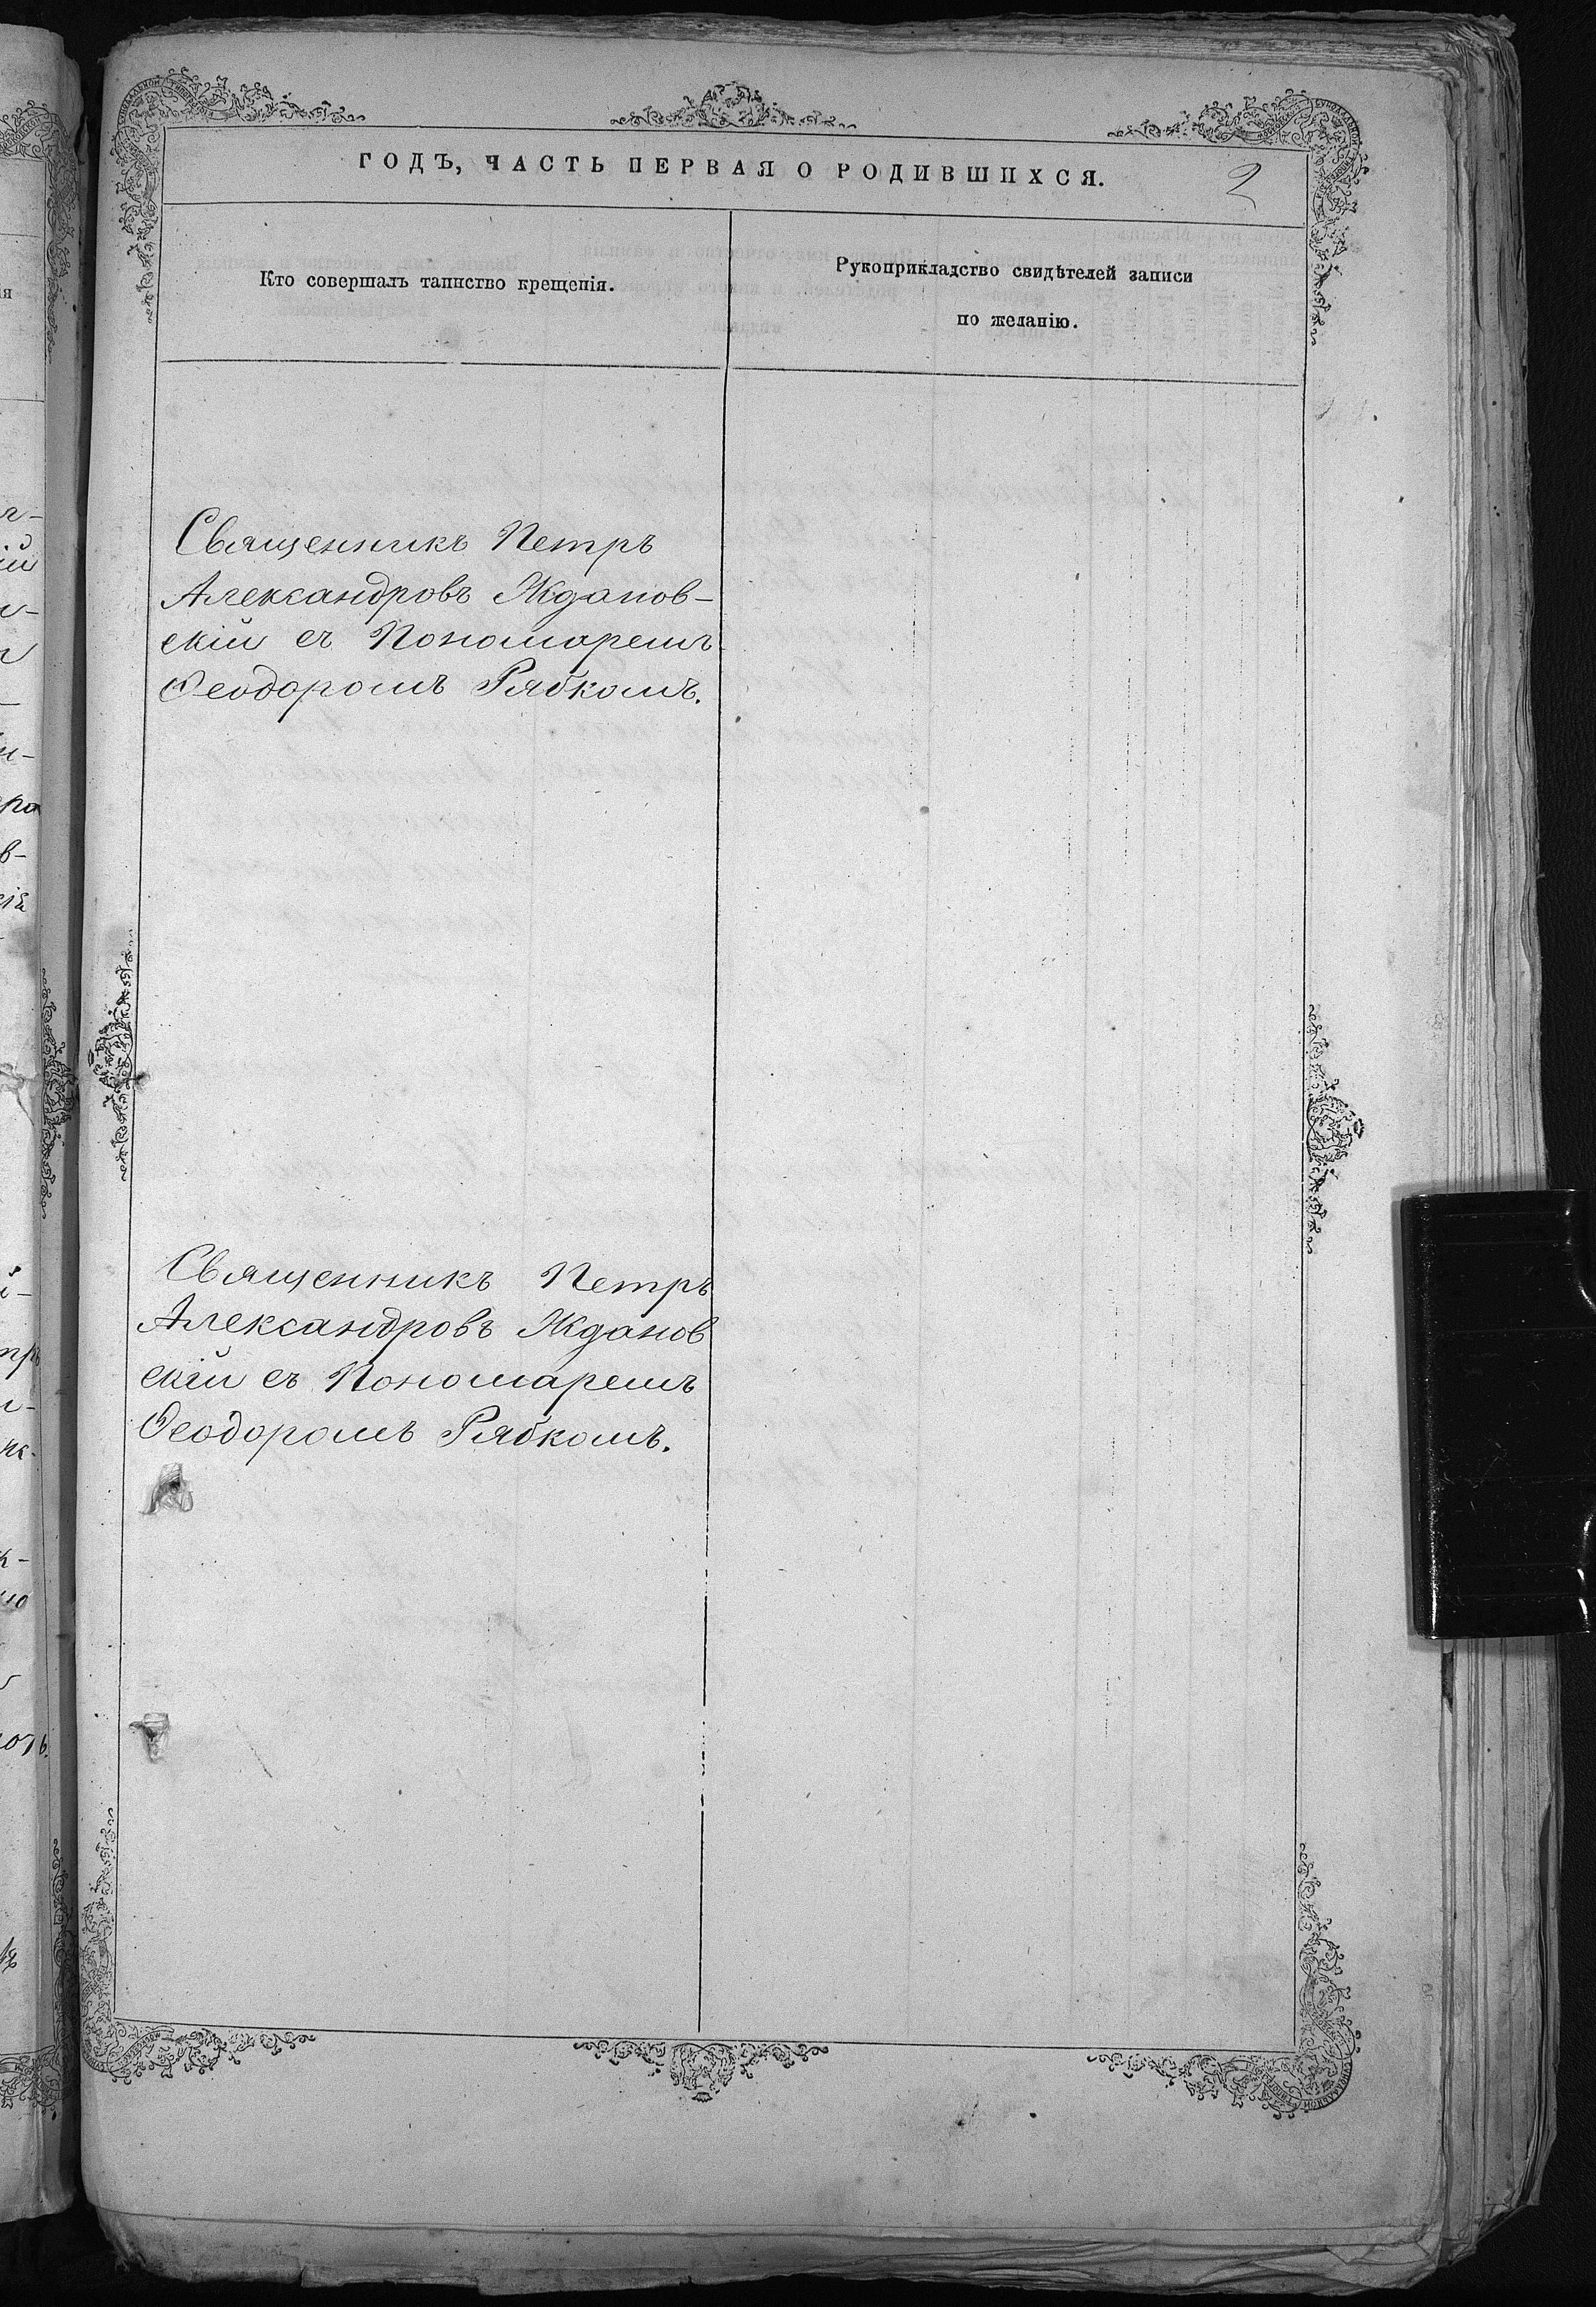 ГОДЪ, ЧАСТЬ ПЕРВАЯ О РОДИВШИХСЯ.
2
Кто совершалъ таинство крещенія.
Рукоприкладство свидѣтелей записи
по желанію.
Священникъ Петръ
Александровъ Жданов-
скій съ Пономаремъ
Ѳеодоромъ Рябкомъ.
Священникъ Петръ
Александровъ Жданов
скій съ Пономаремъ
Ѳеодоромъ Рябкомъ.